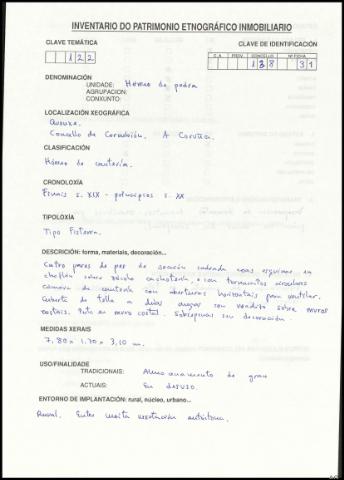 INVENTARIO DO PATRIMONIO ETNOGRÁFICO INMOBILIARIO
CLAVE TEMÁTICA
CLAVE DE IDENTIFICACIÓN
C.A. PROV. CONCELLO Nº FICHA
1 2 2
1 3 8 3 1
DENOMINACIÓN
UNIDADE: Hórreo de pedra
AGRUPACION:
CONXUNTO:
LOCALIZACIÓN XEOGRÁFICA
Concello de A Coruña.
CLASIFICACIÓN
Hórreo de cantaría.
CRONOLOXÍA
Finais s. XIX - principios s. XX
TIPOLOXÍA
Tipo Fisterra.
DESCRICIÓN: forma, materiais, decoración...
Catro pares de pes de sección cadrada coas esquinas en
chaflán sobre zócalo e con tornarratos circulares
Cámara de cantaría con aberturas horizontais para ventilar.
Cuberta de tella a dúas augas con sobre muros
costais. Porta en muro costal. Sobrepena sen decoración.
MEDIDAS XERAIS
7,80 x 1.70 x 3,10 m.
USO/FINALIDADE
TRADICIONAIS: Almacenamento de gran
ACTUAIS: En desuso.
ENTORNO DE IMPLANTACIÓN: rural, núcleo, urbano...
Rural. Entre moita vexetación autóctona.